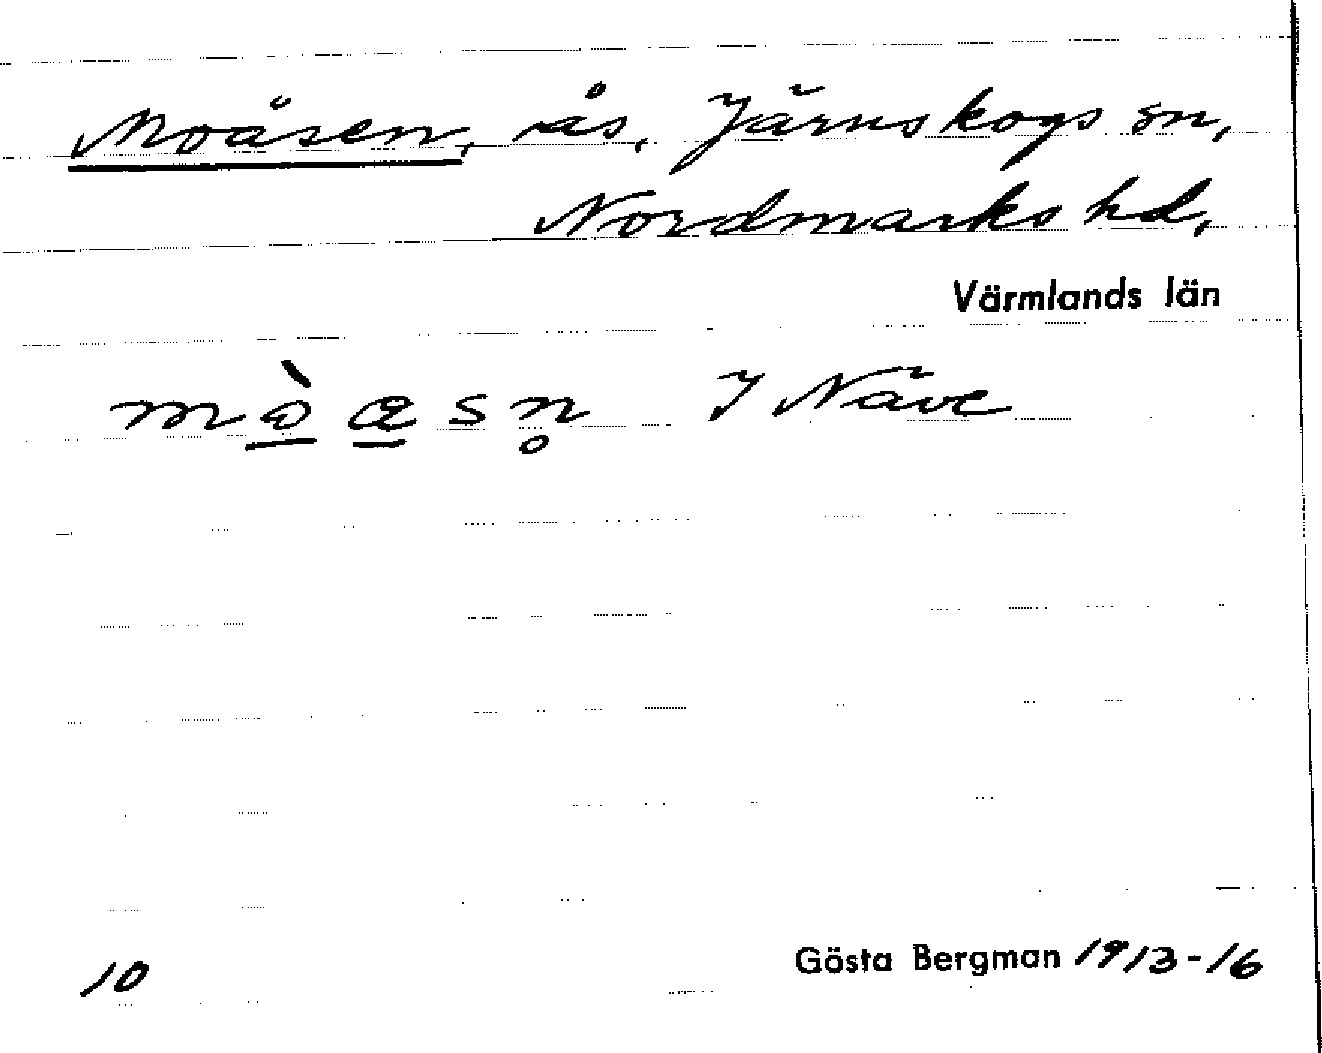 Moåsen, ås, Järnskogs sn,
Nordmarks hd,
Värmlands län
I Näve
10
Gösta Bergman 1913-16